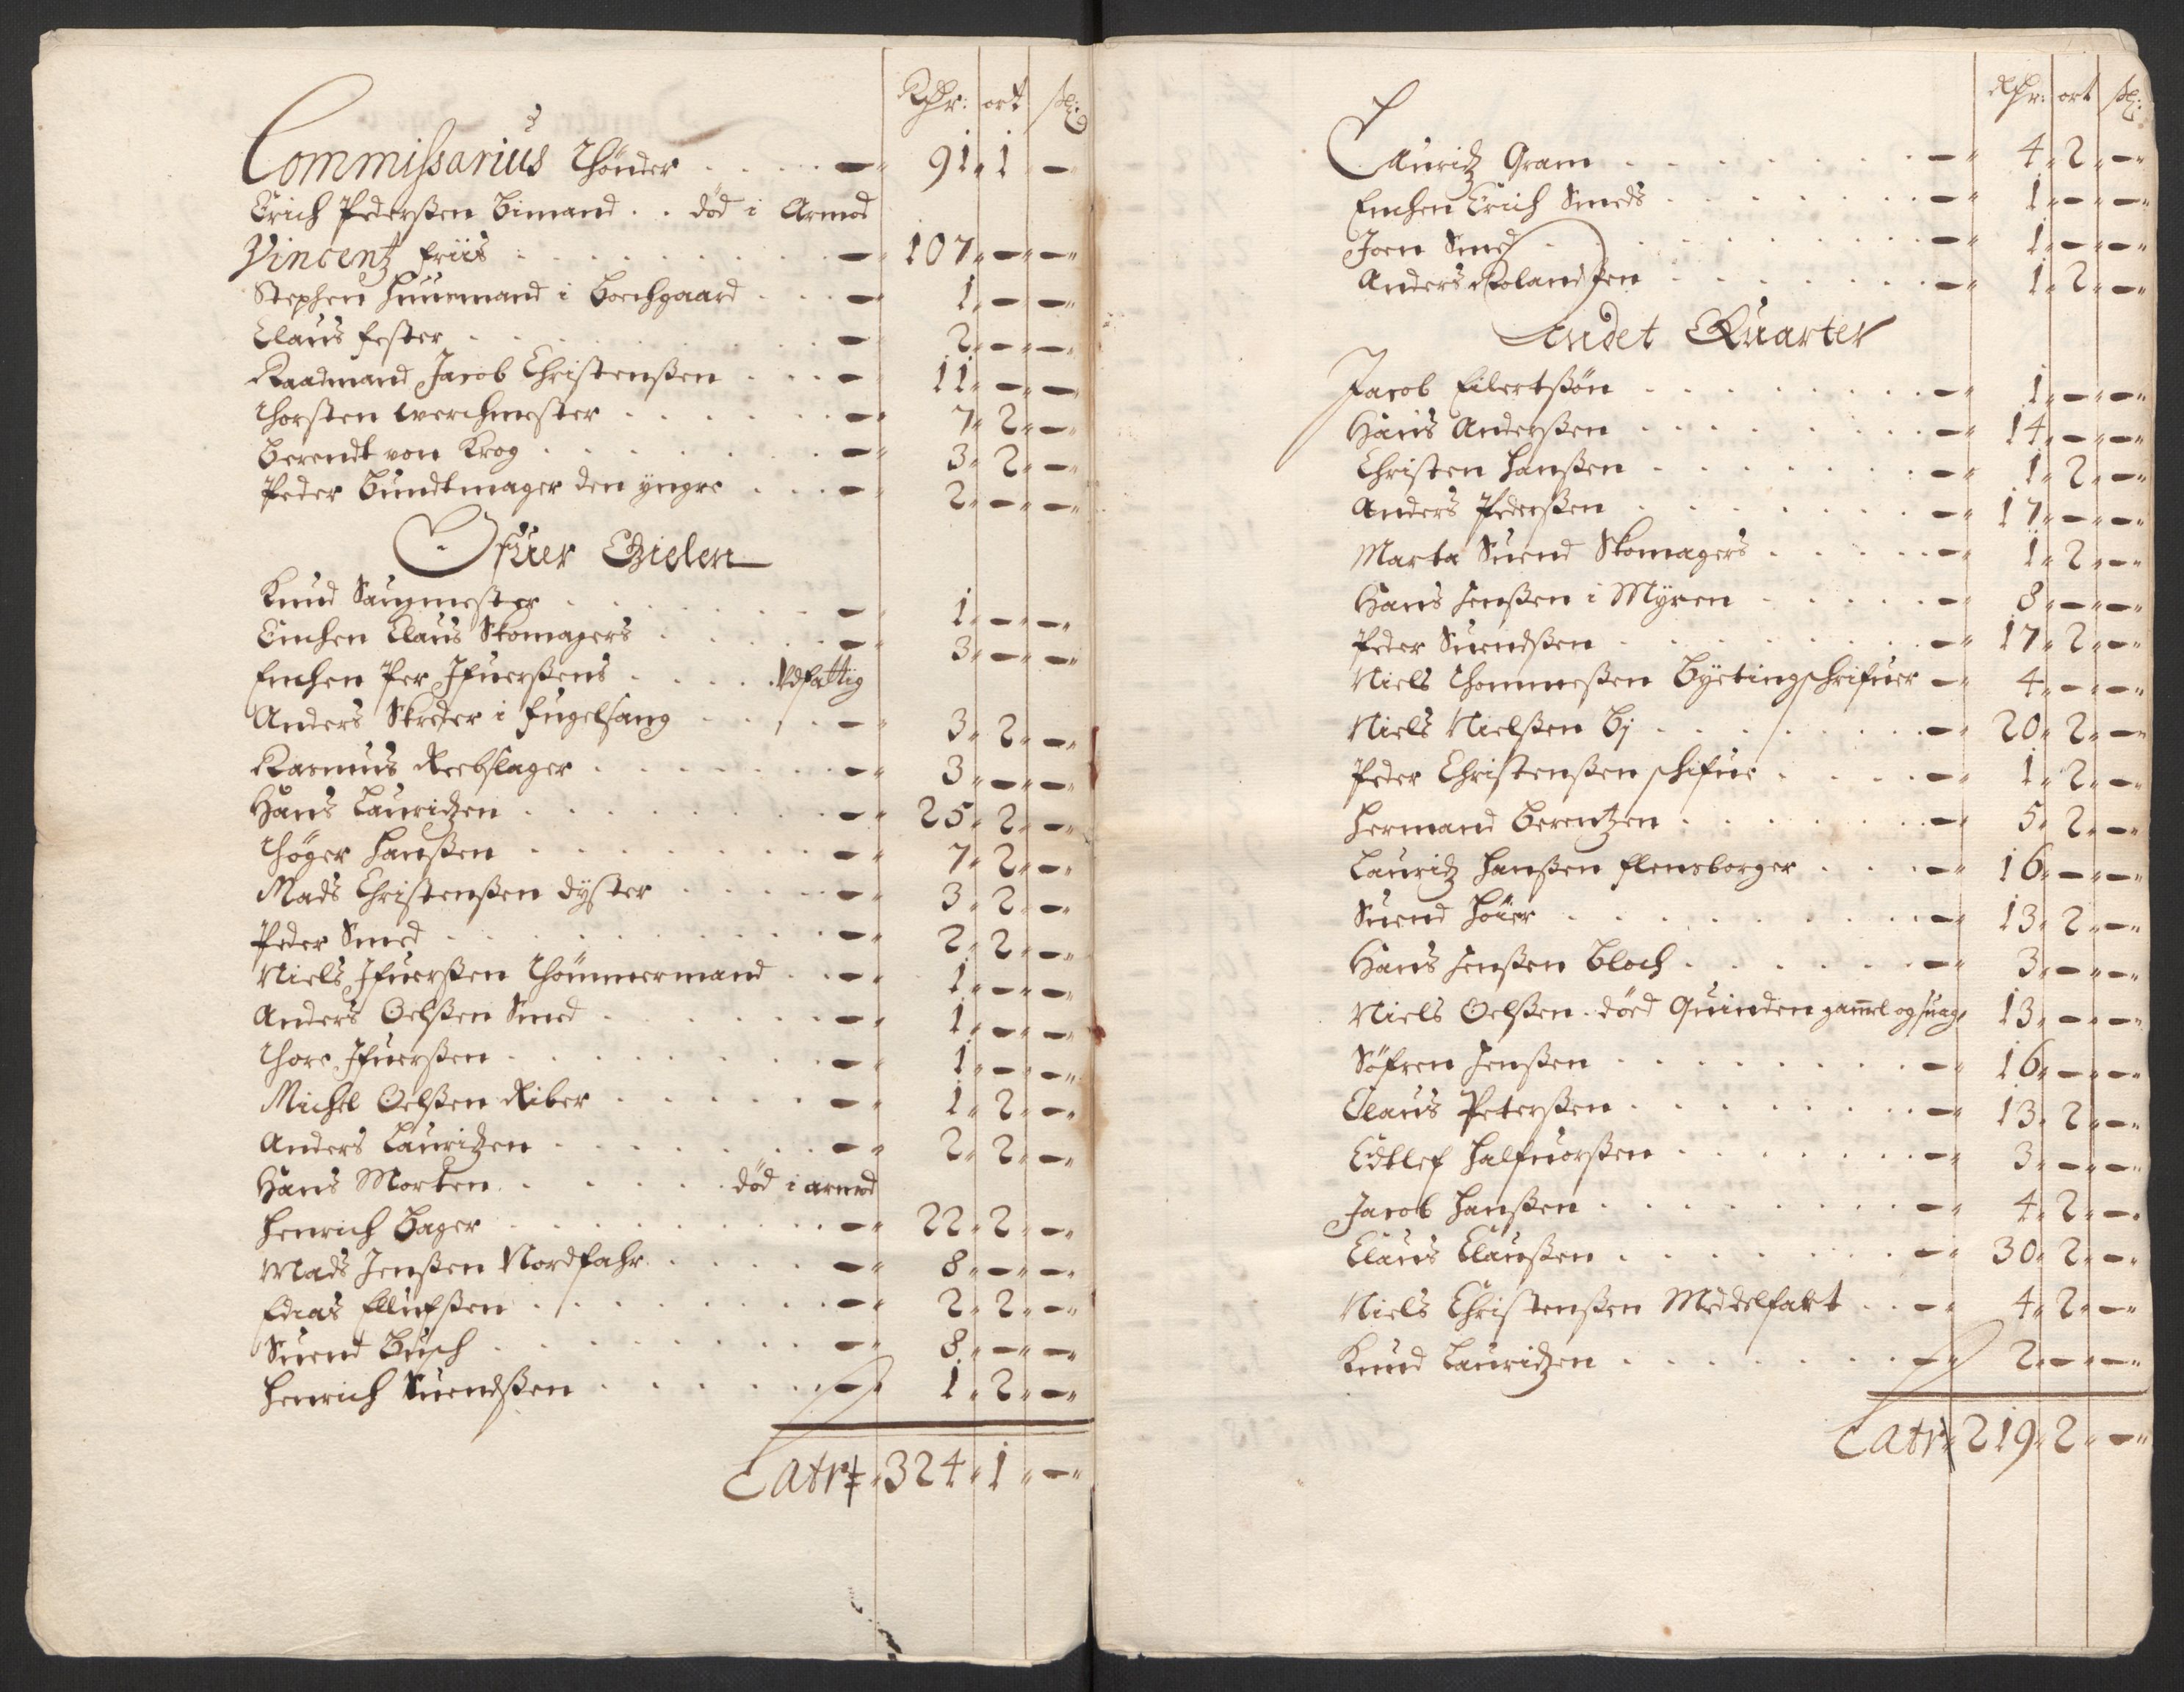 Rdr: ort ß:
Commissarius Thönder . . . . — 91. 1 —
Erich Pederßen Bimand . . død i Armod
Vincentz Friis . . . . — 107. — —
Stephen Huusmand i Borchgaard . . . — 1. — —
Claus Fester . . . . — 2. — —
Raadmand Jacob Christenßen . . . — 11. — —
Thorsten Werchmester . . . . — 7. 2. —
Berendt von Krog . . . . — 3. 2. —
Peder Bundtmager den yngre . . . — 2. — —
Offuer Elfuen
Knud Sangmester . . . . — 1. — —
Enchen Claus Skomagers . . . . — 3. — —
Enchen Per Ifuerßens . . . . Vdfattig
Anders Skreder i Fugelsang . . . . — 3. 2. —
Rasmus Reebslager . . . . — 3. — —
Hans Lauridzen . . . . — 25. 2. —
Thøger Hanßen . . . . — 7. 2. —
Mads Christenßen dyster . . . . — 3. 2. —
Peder Smed . . . . — 2. 2. —
Niels Ifuerßen Thömmermand . . — 1. — —
Anders Oelßen Smed . . . . — 1. — —
Thore Ifuerßen . . . . — 1. — —
Michel Oelßen Riber . . . . — 1. 2. —
Anders Lauridzen . . . . — 2. 2. —
Hans Morten . . . . død i armod
Henrich Bager . . . . — 22. 2. —
Mads Jenßen Nordfahr . . . . — 8. — —
Edias Ellufßen . . . . — 2. 2. —
Suend Busch . . . . — 8. — —
Henrich Suendßen . . . . — 1. 2. —
Latr: 324. 1. —
Rdr: ort ß:
Lauridz Gram . . . . — 4. 2. —
Enchen Erich Smeds . . . . — 1. — —
Joen Smed . . . . — 1. — —
Anders Rolandßen . . . . — 1. 2. —
Andet Quarter
Jacob Eilertßön . . . . — 1. — —
Hans Anderßen . . . . — 14. — —
Christen Hanßen . . . . — 1. 2. —
Anders Pederßen . . . . — 17. — —
Marta Suend Skomagers . . . . — 1. 2. —
Hans Jenßen i Myren . . . . — 8. — —
Peder Suendßen . . . . — 17. 2. —
Niels Thommeßen Byetingschrifuer — 4. — —
Niels Nielßen Bj . . . . — 20. 2. —
Peder Christenßen schifue . . . . — 1. 2. —
Hermand Berentzen . . . . — 5. 2. —
Lauridz Hanßen Flensborger . . . — 16. — —
Suend Höier . . . . — 13. 2. —
Hans Jenßen Bloch . . . . — 3. — —
Niels Oelßen . döed Quinden gamel og suag 13. — —
Söfren Jenßen . . . . — 16. — —
Claus Peterßen . . . . — 13. 2. —
Edtlef Halfuorßen . . . . — 3. — —
Jacob Hanßen . . . . — 4. 2. —
Claus Claußen . . . . — 30. 2. —
Niels Christenßen Meddelfart . . — 4. 2. —
Knud Lauridzen . . . . — 2. — —
Latr: 219. 2. —